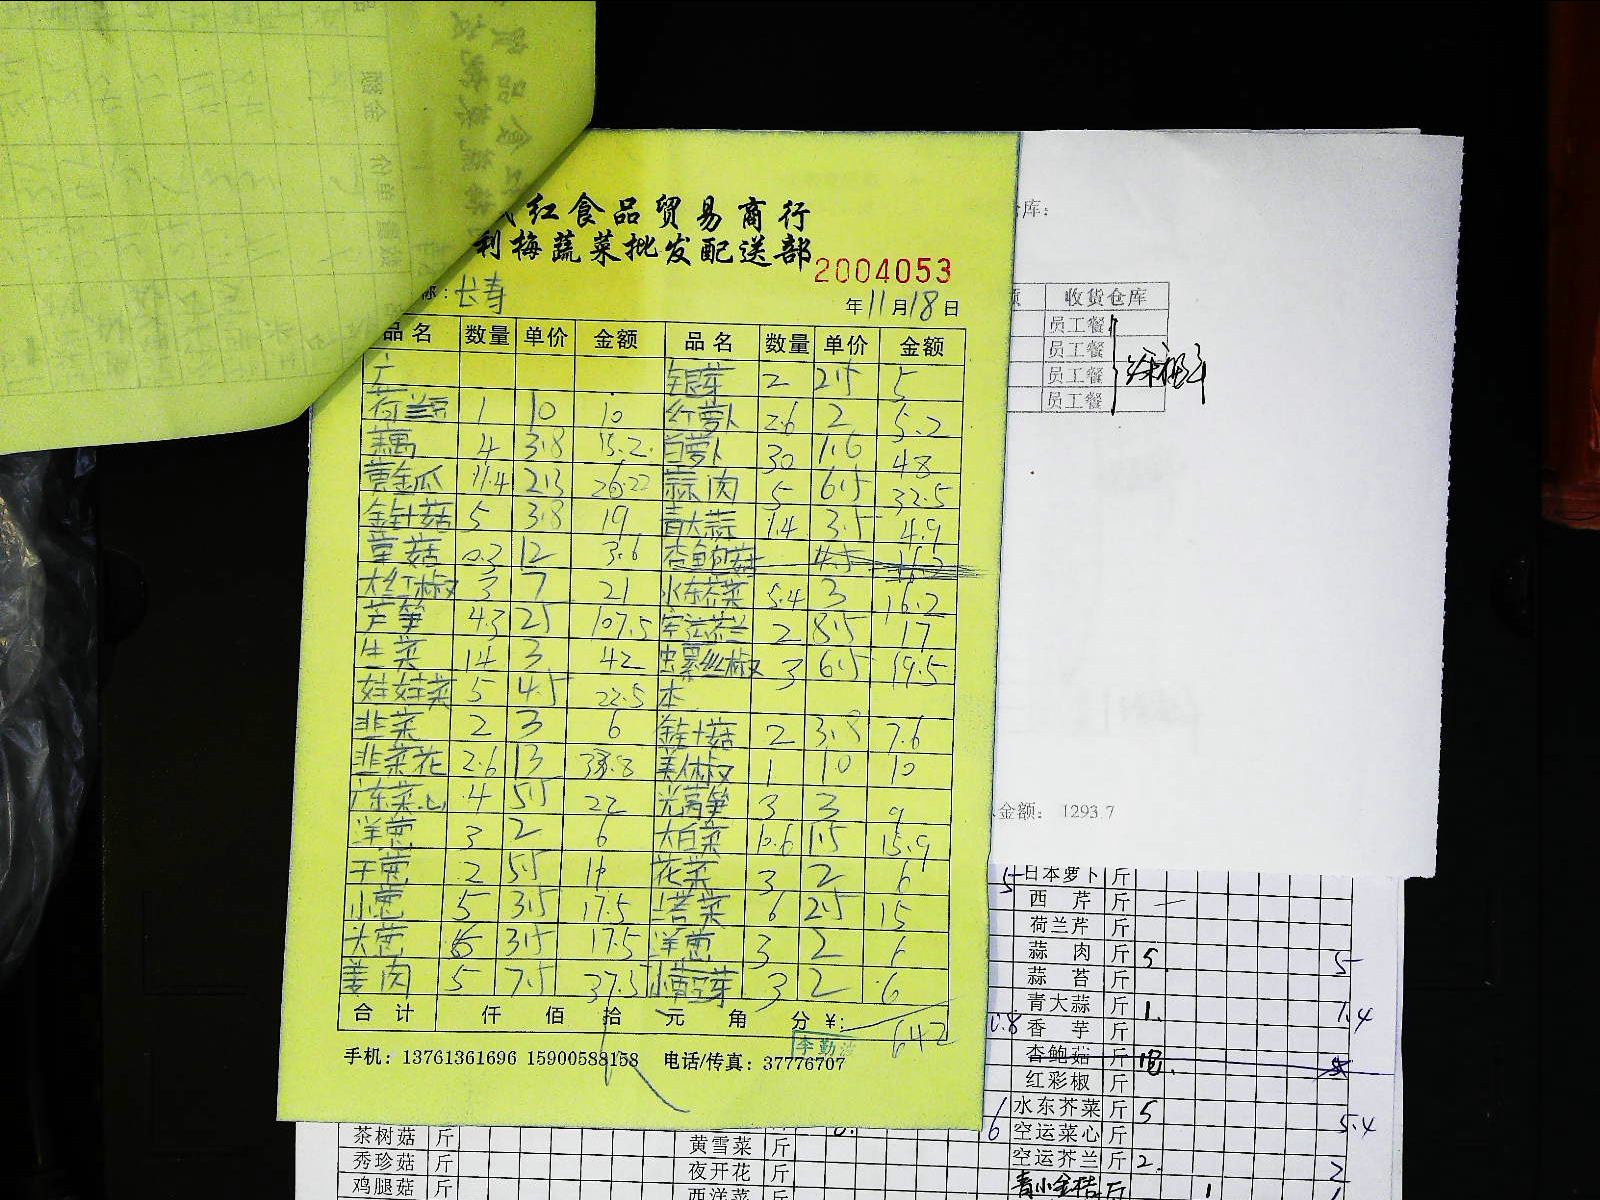 红食品贸易商行
利梅蔬菜批发配送部
2004053
称:长寿
年11月18日
品名 数量 单价 金额 品名 数量 单价 金额
广 银芽 2 2.5 5
荷兰豆 1 10 10 红萝卜 2.6 2 5.2
藕 4 3.8 15.2 白萝卜 30 1.6 48
黄金瓜 11.4 2.3 26.22 蒜肉 5 6.5 32.5
金针菇 5 3.8 19 青大蒜 1.4 3.5 4.9
草菇 0.3 12 3.6 杏鲍菇 4.5 16.2
大红椒 3 7 21 水东芥菜 5.4 3 16.2
芦笋 4.3 25 107.5 空运芥兰 2 8.5 17
生菜 14 3 42 螺丝椒 3 6.5 19.5
娃娃菜 5 4.5 22.5 本
韭菜 2 3 6 金针菇 2 3.8 7.6
韭菜花 2.6 13 33.8 美人椒 1 10 10
广东菜心 4 5.5 22 光莴笋 3 3 9
洋葱 3 2 6 大白菜 10.6 1.5 15.9
干葱 2 5.5 11 花菜 3 2 6
小葱 5 3.5 17.5 塔菜 6 2.5 15
大葱 5 3.5 17.5 洋葱 3 2 6
姜肉 5 7.5 37.5 小黄豆芽 3 2 6
合计 仟 佰 拾 元 角 分 ¥: 642
李勤
手机: 13761361696 15900588158 电话/传真: 37776707
库:
收货仓库
员工餐
员工餐
员工餐
员工餐
金额: 1293.7
5 日本萝卜 斤
西芹 斤
荷兰芹 斤
蒜肉 斤 5 5
蒜苔 斤
青大蒜 斤 1. 1.4
0.8 香芋 斤
杏鲍菇 斤
红彩椒 斤
水东芥菜 斤 5 5.4
6 空运菜心 斤
空运芥兰 斤 2. 2
青小金桔 斤 1
茶树菇 斤 黄雪菜 斤
秀珍菇 斤 夜开花 斤
鸡腿菇 斤 西洋菜 斤